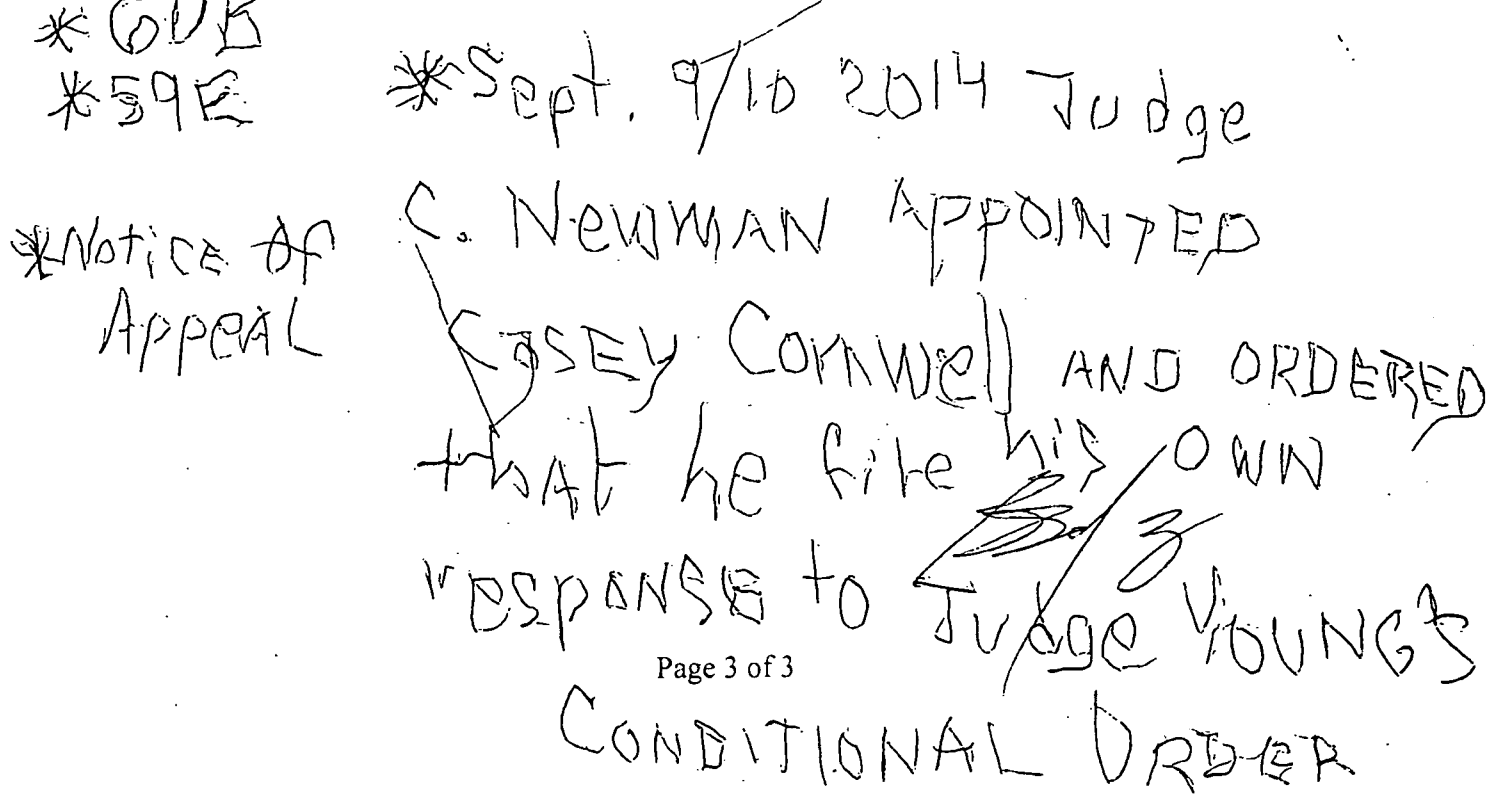 *60B
*59E
*Notice of
Appeal
*Sept. 9/10 2014 Judge
C. Newman Appointed
Casey Cornwell AND ORDERED
that he file his OWN
response to Judge YOUNG'S
Page 3 of 3
CONDITIONAL ORDER